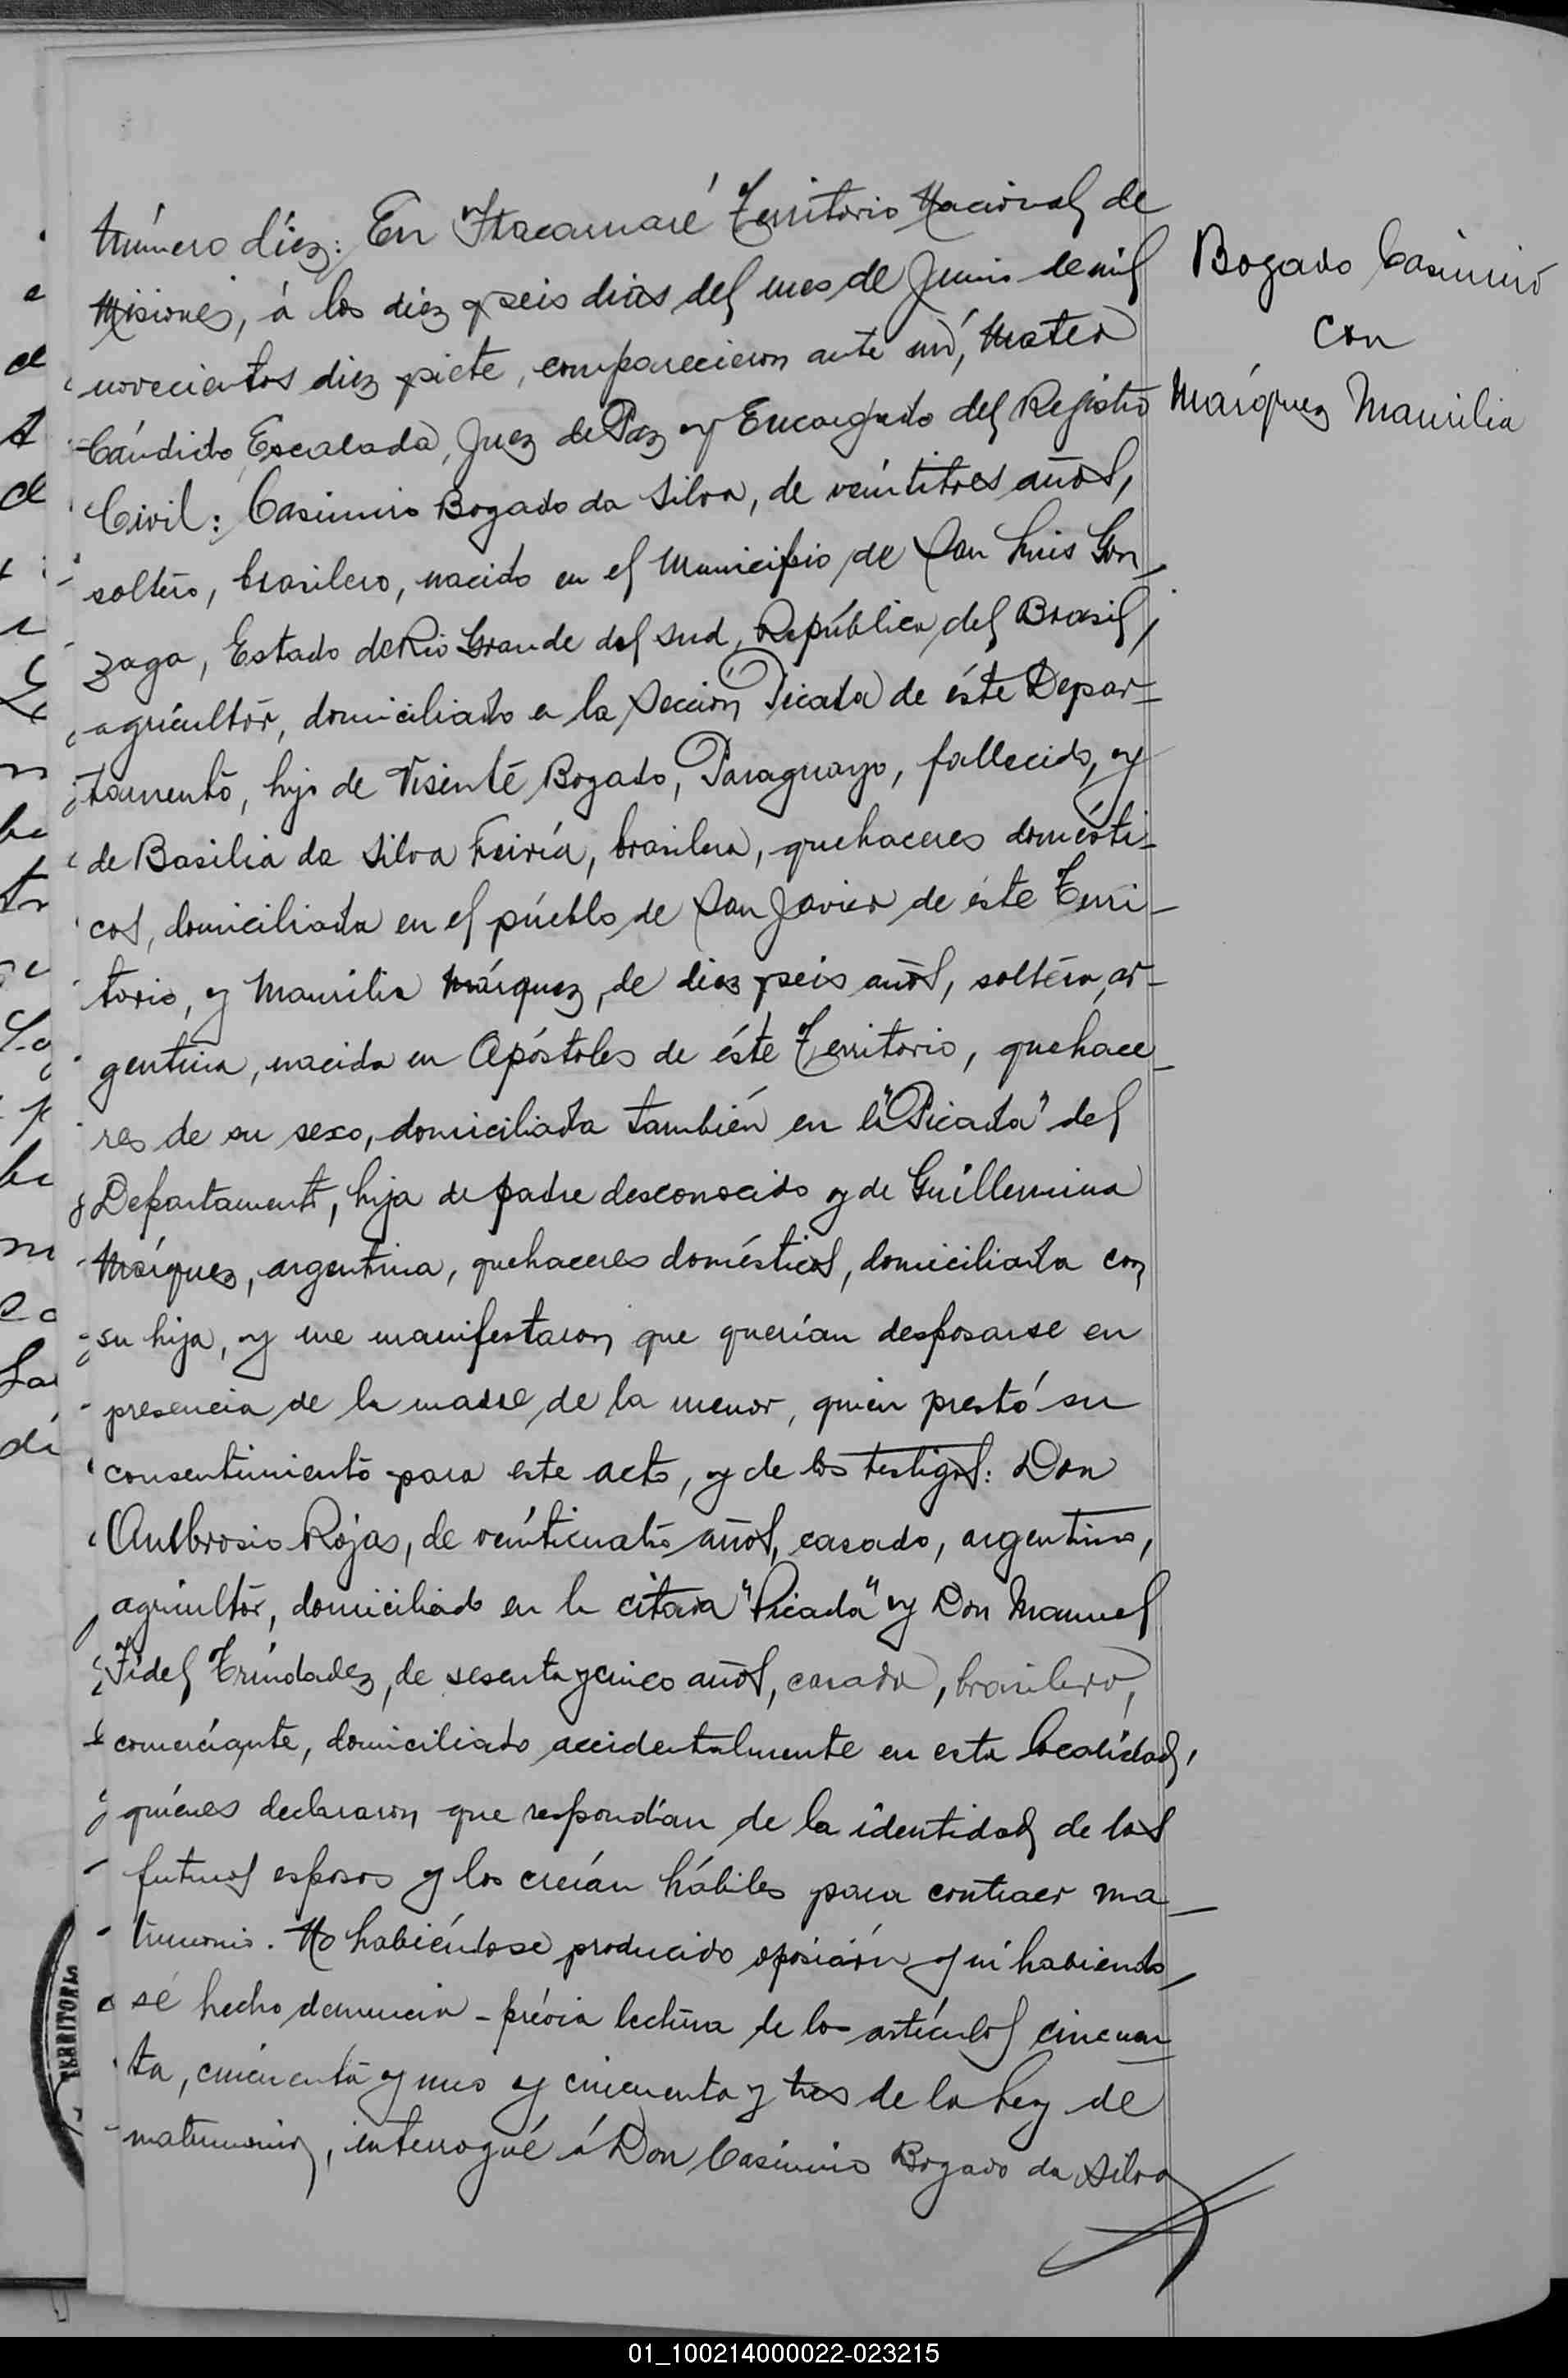 Número diez: En Itacaruaré Territorio Nacional de
Misiones, á los diez y seis dias del mes de Junio de mil
novecientos diez y siete, comparecieron ante mí, Mateo
Cándido Escalada, Juez de Paz y Encargado del Registro
Civil: Casimiro Bogado da Silva, de veintitres años,
soltero, brasilero, nacido en el Municipio de San Luis Gon-
zaga, Estado de Rio Grande del Sud, República del Brasil,
agricultor, domiciliado en la Sección Picada de éste Depar-
tamento, hijo de Visente Bogado, Paraguayo, fallecido, y
de Basilia da Silva, brasilera, quehaceres domésti-
cos, domiciliada en el pueblo de San Javier de éste Terri-
torio, y Maurilia Márquez, de diez y seis años, soltera, ar-
gentina, nacida en Apóstoles de éste Territorio, quehace-
res de su sexo, domiciliada también en la "Picada" del
Departamento, hija de padre desconocido y de Guillermina
Márquez, argentina, quehaceres domésticos, domiciliada con
su hija, y me manifestaron que querían desposarse en
presencia de la madre de la menor, quien prestó su
consentimiento para este acto, y de los testigos: Don
Ambrosio Rojas, de veinticuatro años, casado, argentino,
agricultor, domiciliado en la citada "Picada" y Don Manuel
Fidel Trindadez, de sesenta y cinco años, casado, brasilero,
comerciante, domiciliado accidentalmente en esta localidad,
quienes declararon que respondían de la identidad de los
futuros esposos y los creían hábiles para contraer ma-
trimonio. No habiéndose producido oposición y ni habiendo-
se hecho denuncia - prévia lectura de los artículos cincuen-
ta, cincuenta y uno y cincuenta y tres de la Ley de
matrimonio, interrogué á Don Casimiro Bogado da Silva
Bogado Casimiro
con
Márquez Maurilia
TERRITORIO
01_100214000022-023215